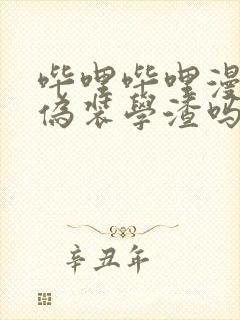 哔哩哔哩漫
偽装學渣吗
辛丑年